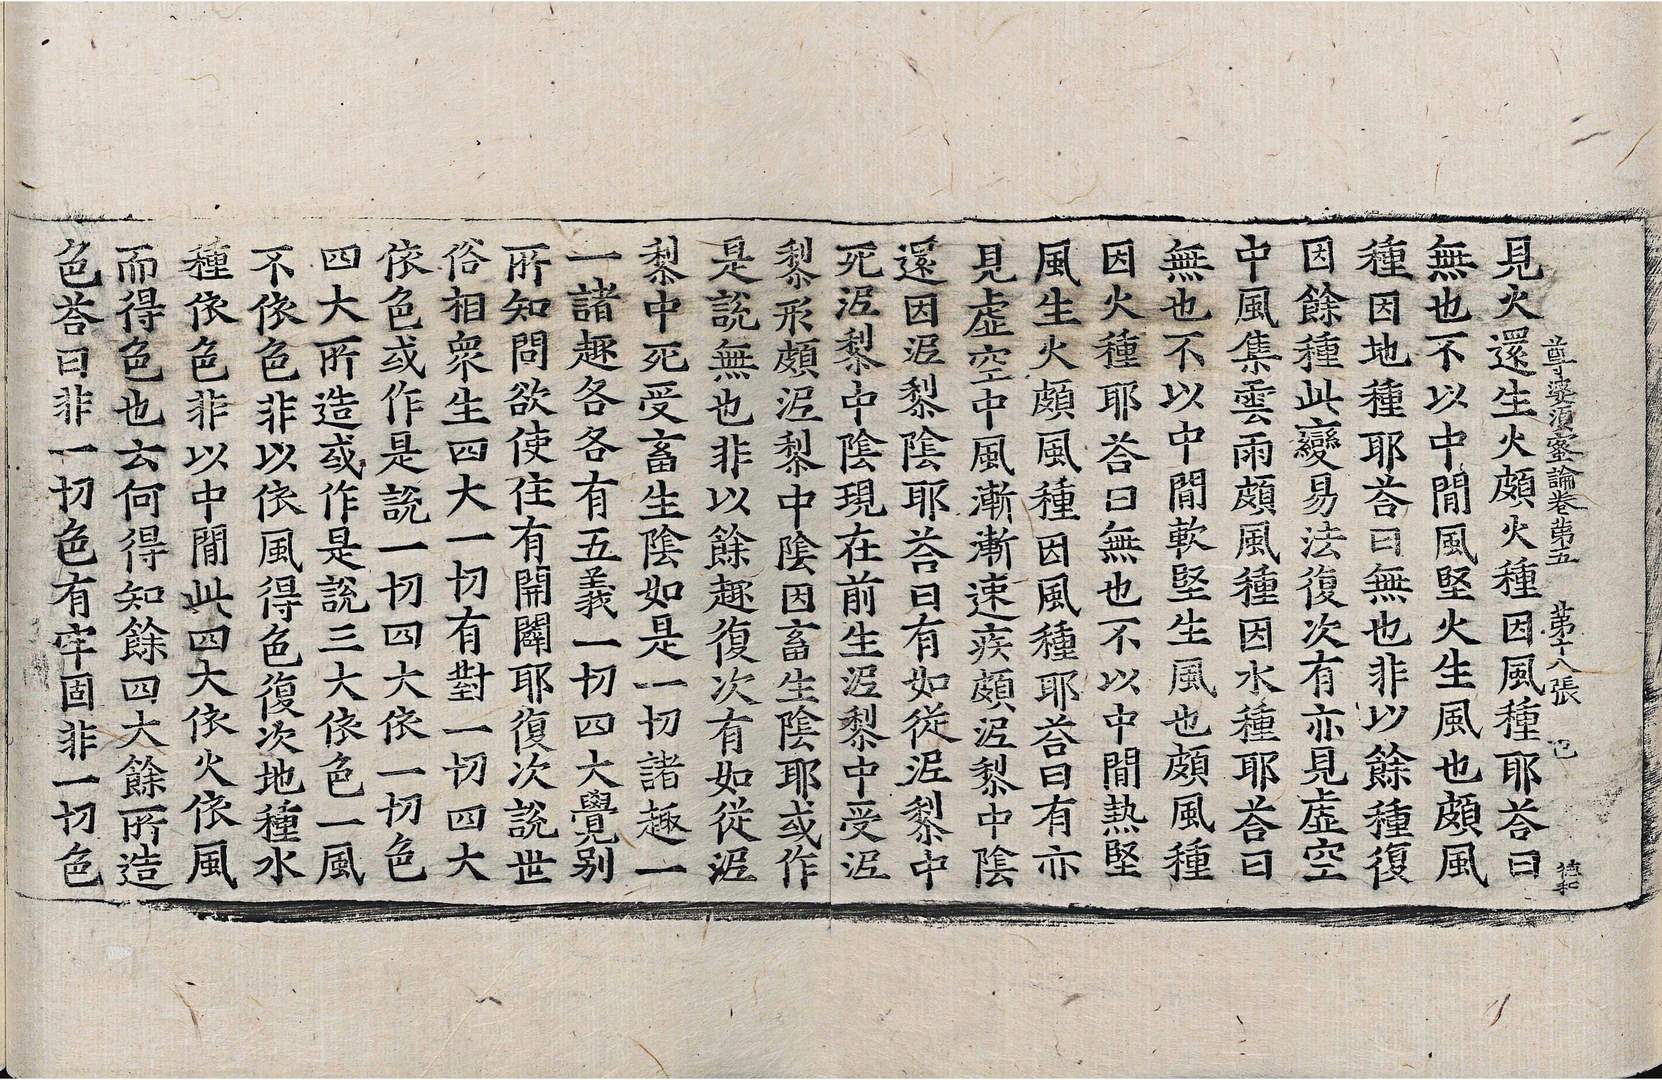 尊婆須蜜論卷第五 第十八張
見火還生火頗火種因風種耶荅曰
無也不以中間風堅火生風也頗風
種因地種耶荅曰無也非以餘種復
因餘種此變易法復次有亦見虛空
中風集雲雨頗風種因水種耶荅曰
無也不以中間軟堅生風也頗風種
因火種耶荅曰無也不以中間熱堅
風生火頗風種因風種耶荅曰有亦
見虛空中風漸漸速疾頗泥黎中陰
還因泥黎陰耶荅曰有如從泥黎中
死泥黎中陰現在前生泥黎中受泥
黎形頗泥黎中陰因畜生陰耶或作
是說無也非以餘趣復次有如從泥
黎中死受畜生陰如是一切諸趣一
一諸趣各各有五義一切四大覺別
所知問欲使住有開闢耶復次說世
俗相衆生四大一切有對一切四大
依色或作是說一切四大依一切色
四大所造或作是說三大依色一風
不依色非以依風得色復次地種水
種依色非以中間此四大依火依風
而得色也云何得知餘四大餘所造
色荅曰非一切色有牢固非一切色